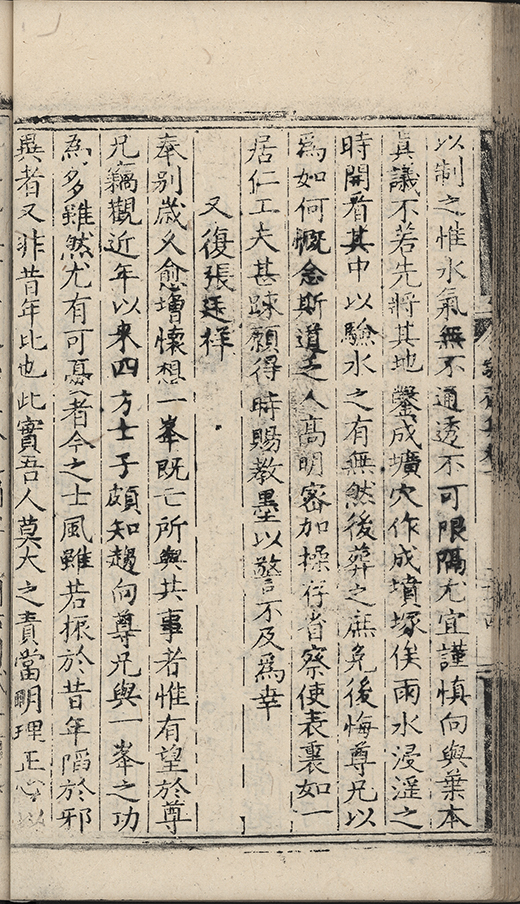 以制之惟水氣無不通透不可限隔尤宜謹慎向與葉本
眞議不若先將其地鑿成壙穴作成墳塚俟雨水浸淫之
時開看其中以驗水之有無然後葬之庶免後悔尊兄以
爲如何慨念斯道之人高明密加操存省察使表裏如一
居仁工夫甚踈願得時賜教墨以警不及爲幸
又復張廷祥
奉別歲久愈增懷想一峯既亡所與共事者惟有望於尊
兄竊觀近年以来四方士子頗知趨向尊兄與一峯之功
為多雖然尤有可憂者今之士風雖若振於昔年陷於邪
異者又非昔年比也此實吾人莫大之責當明理正心以